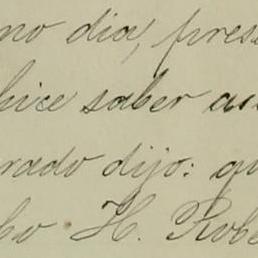 mo dia, prese
hice saber au
rado dijo: qu
bo H. Robe